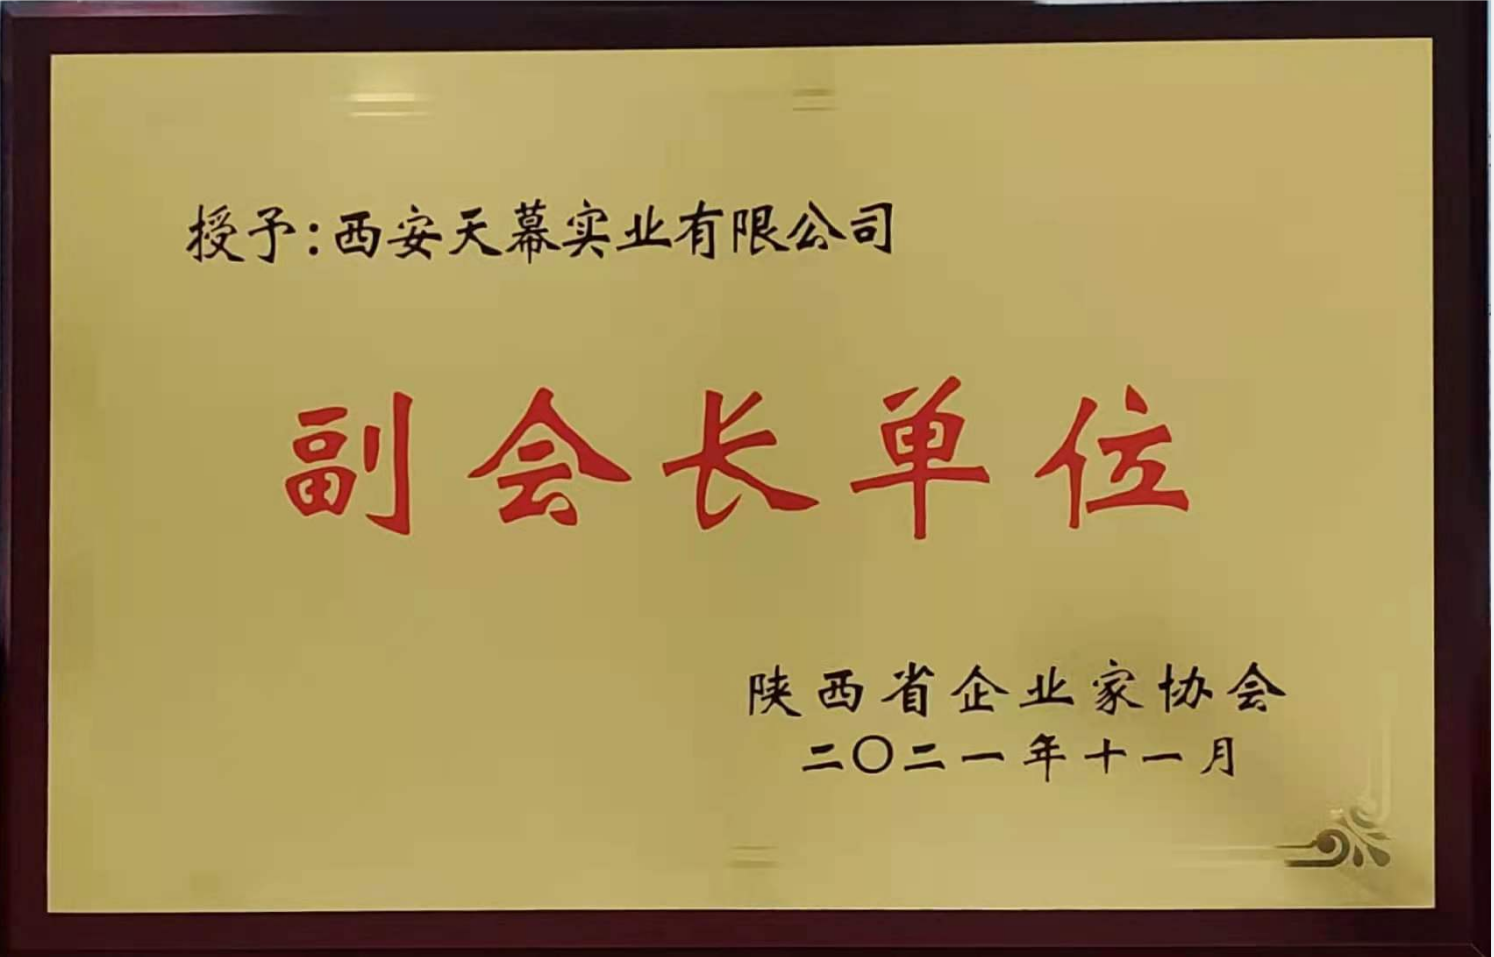 授予:西安天幕实业有限公司
副会长单位
陕西省企业家协会
二〇二一年十一月